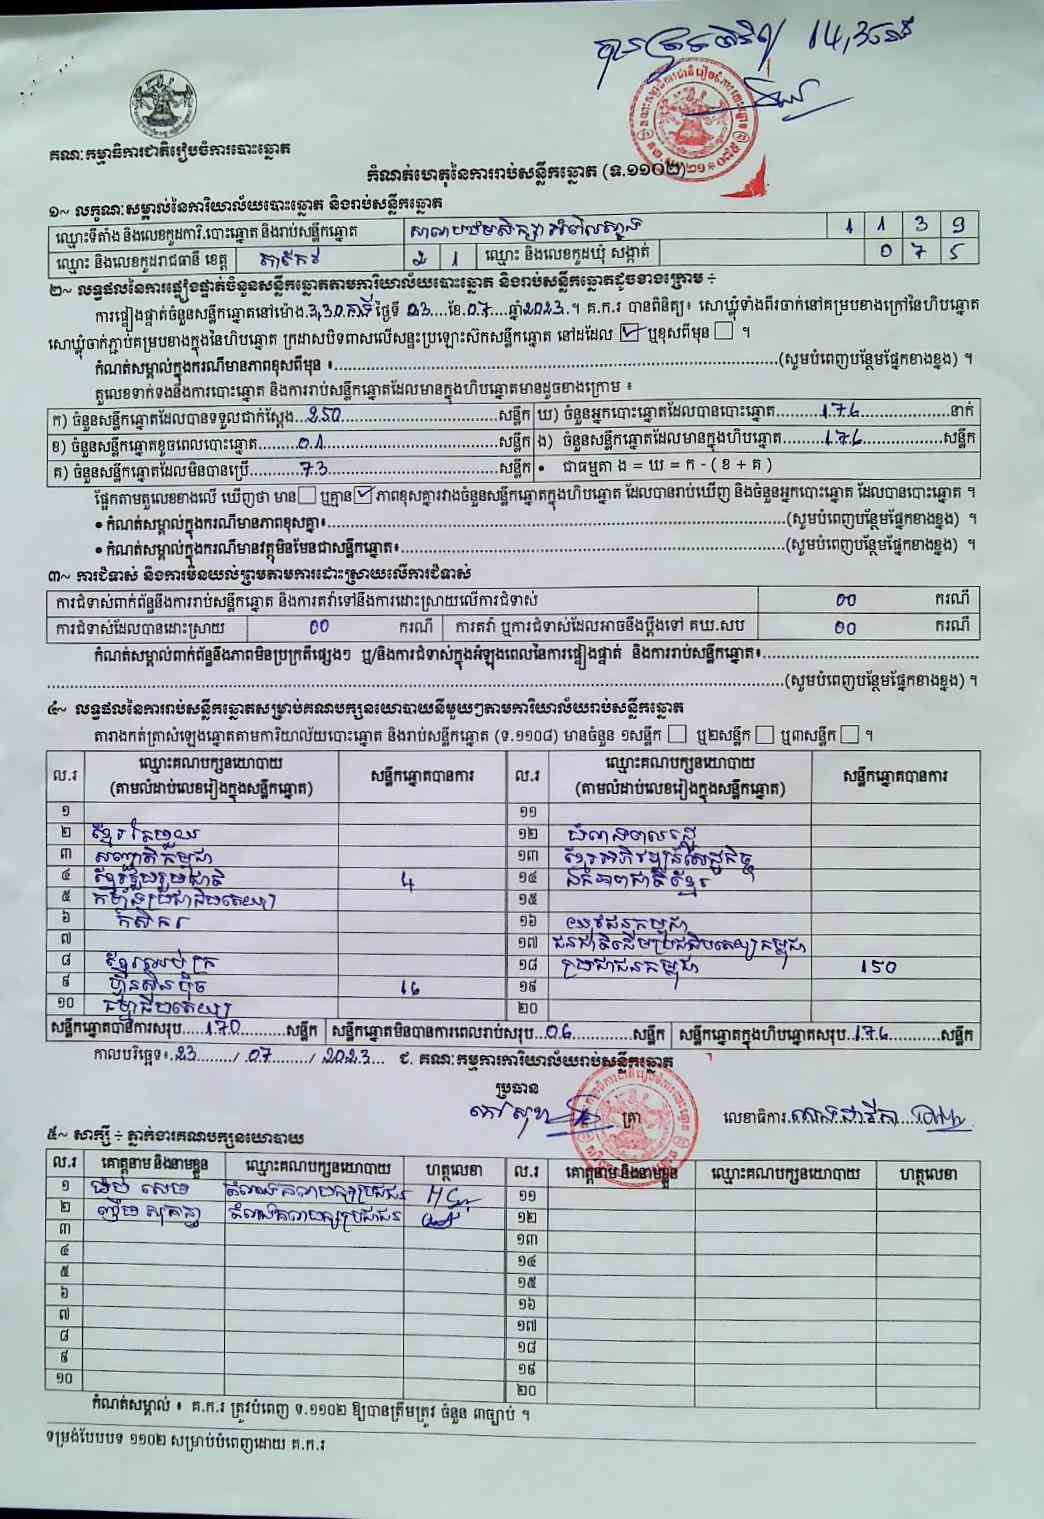 14,
គណៈកម្មាធិការជាតិរៀបចំការបោះឆ្នោត
កំណត់ហេតុនៃការរាប់សន្លឹកឆ្នោត (ទ.១១០២)
១~ លក្ខណៈសម្គាល់នៃការិយាល័យបោះឆ្នោត និងរាប់សន្លឹកឆ្នោត
ឈ្មោះទីតាំង និងលេខកូដការិ.បោះឆ្នោត និងរាប់សន្លឹកឆ្នោត សាលាបឋមសិក្សា 1 1 3 9
ឈ្មោះ និងលេខកូដរាជធានី ខេត្ត តាកែវ 2 1 ឈ្មោះ និងលេខកូដឃុំ សង្កាត់ 0 7 5
២~ លទ្ធផលនៃការផ្ទៀងផ្ទាត់ចំនួនសន្លឹកឆ្នោតតាមការិយាល័យបោះឆ្នោត និងរាប់សន្លឹកឆ្នោតដូចខាងក្រោម ÷
ការផ្ទៀងផ្ទាត់ចំនួនសន្លឹកឆ្នោតនៅម៉ោង 3,30 នាទី ថ្ងៃទី 23 ខែ 07 ឆ្នាំ 2023 ។ គ.ក.រ បានពិនិត្យ៖ សោឃ្លុំទាំងពីរចាក់នៅគម្របខាងក្រៅនៃហិបឆ្នោត
សោឃ្លុំចាក់ភ្ជាប់គម្របខាងក្នុងនៃហិបឆ្នោត ក្រដាសបិទពាសលើសន្ទះប្រឡោះស៊កសន្លឹកឆ្នោត នៅដដែល ☑ ឬខុសពីមុន ☐ ។
កំណត់សម្គាល់ក្នុងករណីមានភាពខុសពីមុន ៖ (សូមបំពេញបន្ថែមផ្នែកខាងខ្នង) ។
តួលេខទាក់ទងនឹងការបោះឆ្នោត និងការរាប់សន្លឹកឆ្នោតដែលមានក្នុងហិបឆ្នោតមានដូចខាងក្រោម ៖
ក) ចំនួនសន្លឹកឆ្នោតដែលបានទទួលជាក់ស្តែង 250 សន្លឹក ឃ) ចំនួនអ្នកបោះឆ្នោតដែលបានបោះឆ្នោត 176 នាក់
ខ) ចំនួនសន្លឹកឆ្នោតខូចពេលបោះឆ្នោត 01 សន្លឹក ង) ចំនួនសន្លឹកឆ្នោតដែលមានក្នុងហិបឆ្នោត 176 សន្លឹក
គ) ចំនួនសន្លឹកឆ្នោតដែលមិនបានប្រើ 73 សន្លឹក • ជាធម្មតា ង = ឃ = ក - ( ខ + គ )
ផ្អែកតាមតួលេខខាងលើ ឃើញថា មាន ☐ ឬគ្មាន ☑ ភាពខុសគ្នារវាងចំនួនសន្លឹកឆ្នោតក្នុងហិបឆ្នោត ដែលបានរាប់ឃើញ និងចំនួនអ្នកបោះឆ្នោត ដែលបានបោះឆ្នោត ។
• កំណត់សម្គាល់ក្នុងករណីមានភាពខុសគ្នា៖ (សូមបំពេញបន្ថែមផ្នែកខាងខ្នង) ។
• កំណត់សម្គាល់ក្នុងករណីមានវត្ថុមិនមែនជាសន្លឹកឆ្នោត៖ (សូមបំពេញបន្ថែមផ្នែកខាងខ្នង) ។
៣~ ការជំទាស់ និងការមិនយល់ព្រមតាមការដោះស្រាយលើការជំទាស់
ការជំទាស់ពាក់ព័ន្ធនឹងការរាប់សន្លឹកឆ្នោត និងការតវ៉ាទៅនឹងការដោះស្រាយលើការជំទាស់ 00 ករណី
ការជំទាស់ដែលបានដោះស្រាយ 00 ករណី ការតវ៉ា ឬការជំទាស់ដែលអាចនឹងប្តឹងទៅ គឃ.សប 00 ករណី
កំណត់សម្គាល់ពាក់ព័ន្ធនឹងភាពមិនប្រក្រតីផ្សេងៗ ឬ/និងការជំទាស់ក្នុងអំឡុងពេលនៃការផ្ទៀងផ្ទាត់ និងការរាប់សន្លឹកឆ្នោត៖
(សូមបំពេញបន្ថែមផ្នែកខាងខ្នង) ។
៤~ លទ្ធផលនៃការរាប់សន្លឹកឆ្នោតសម្រាប់គណបក្សនយោបាយនីមួយៗតាមការិយាល័យរាប់សន្លឹកឆ្នោត
តារាងកត់ត្រាសំឡេងឆ្នោតតាមការិយាល័យបោះឆ្នោត និងរាប់សន្លឹកឆ្នោត (ទ.១១០៨) មានចំនួន ១សន្លឹក ☐ ឬ២សន្លឹក ☐ ឬ៣សន្លឹក ☐ ។
ល.រ ឈ្មោះគណបក្សនយោបាយ (តាមលំដាប់លេខរៀងក្នុងសន្លឹកឆ្នោត) សន្លឹកឆ្នោតបានការ ល.រ ឈ្មោះគណបក្សនយោបាយ (តាមលំដាប់លេខរៀងក្នុងសន្លឹកឆ្នោត) សន្លឹកឆ្នោតបានការ
១ ១១
២ ខ្មែរតែមួយ ១២
៣ សញ្ជាតិកម្ពុជា ១៣ ខ្មែរអភិវឌ្ឍន៍សេដ្ឋកិច្ច
៤ ខ្មែររួបរួមជាតិ 4 ១៤ ឯកភាពជាតិខ្មែរ
៥ កម្លាំងប្រជាធិបតេយ្យ ១៥
៦ កសិករ ១៦ យុវជនកម្ពុជា
៧ ១៧ ជនជាតិដើមប្រជាធិបតេយ្យកម្ពុជា
៨ ខ្មែរឈប់ក្រ ១៨ ប្រជាជនកម្ពុជា 150
៩ ហ៊្វុនស៊ិនប៉ិច 16 ១៩
១០ ធម្មាធិបតេយ្យ ២០
សន្លឹកឆ្នោតបានការសរុប 170 សន្លឹក សន្លឹកឆ្នោតមិនបានការពេលរាប់សរុប 06 សន្លឹក សន្លឹកឆ្នោតក្នុងហិបឆ្នោតសរុប 176 សន្លឹក
កាលបរិច្ឆេទ៖ 23 / 07 / 2023 ជ. គណៈកម្មការការិយាល័យរាប់សន្លឹកឆ្នោត
ប្រធាន
ត្រា លេខាធិការ
៥~ សាក្សី ÷ ភ្នាក់ងារគណបក្សនយោបាយ
ល.រ គោត្តនាម និងនាមខ្លួន ឈ្មោះគណបក្សនយោបាយ ហត្ថលេខា ល.រ គោត្តនាម និងនាមខ្លួន ឈ្មោះគណបក្សនយោបាយ ហត្ថលេខា
១ ១១
២ ១២
៣ ១៣
៤ ១៤
៥ ១៥
៦ ១៦
៧ ១៧
៨ ១៨
៩ ១៩
១០ ២០
កំណត់សម្គាល់ ៖ គ.ក.រ ត្រូវបំពេញ ទ.១១០២ ឱ្យបានត្រឹមត្រូវ ចំនួន ៣ច្បាប់ ។
ទម្រង់បែបបទ ១១០២ សម្រាប់បំពេញដោយ គ.ក.រ